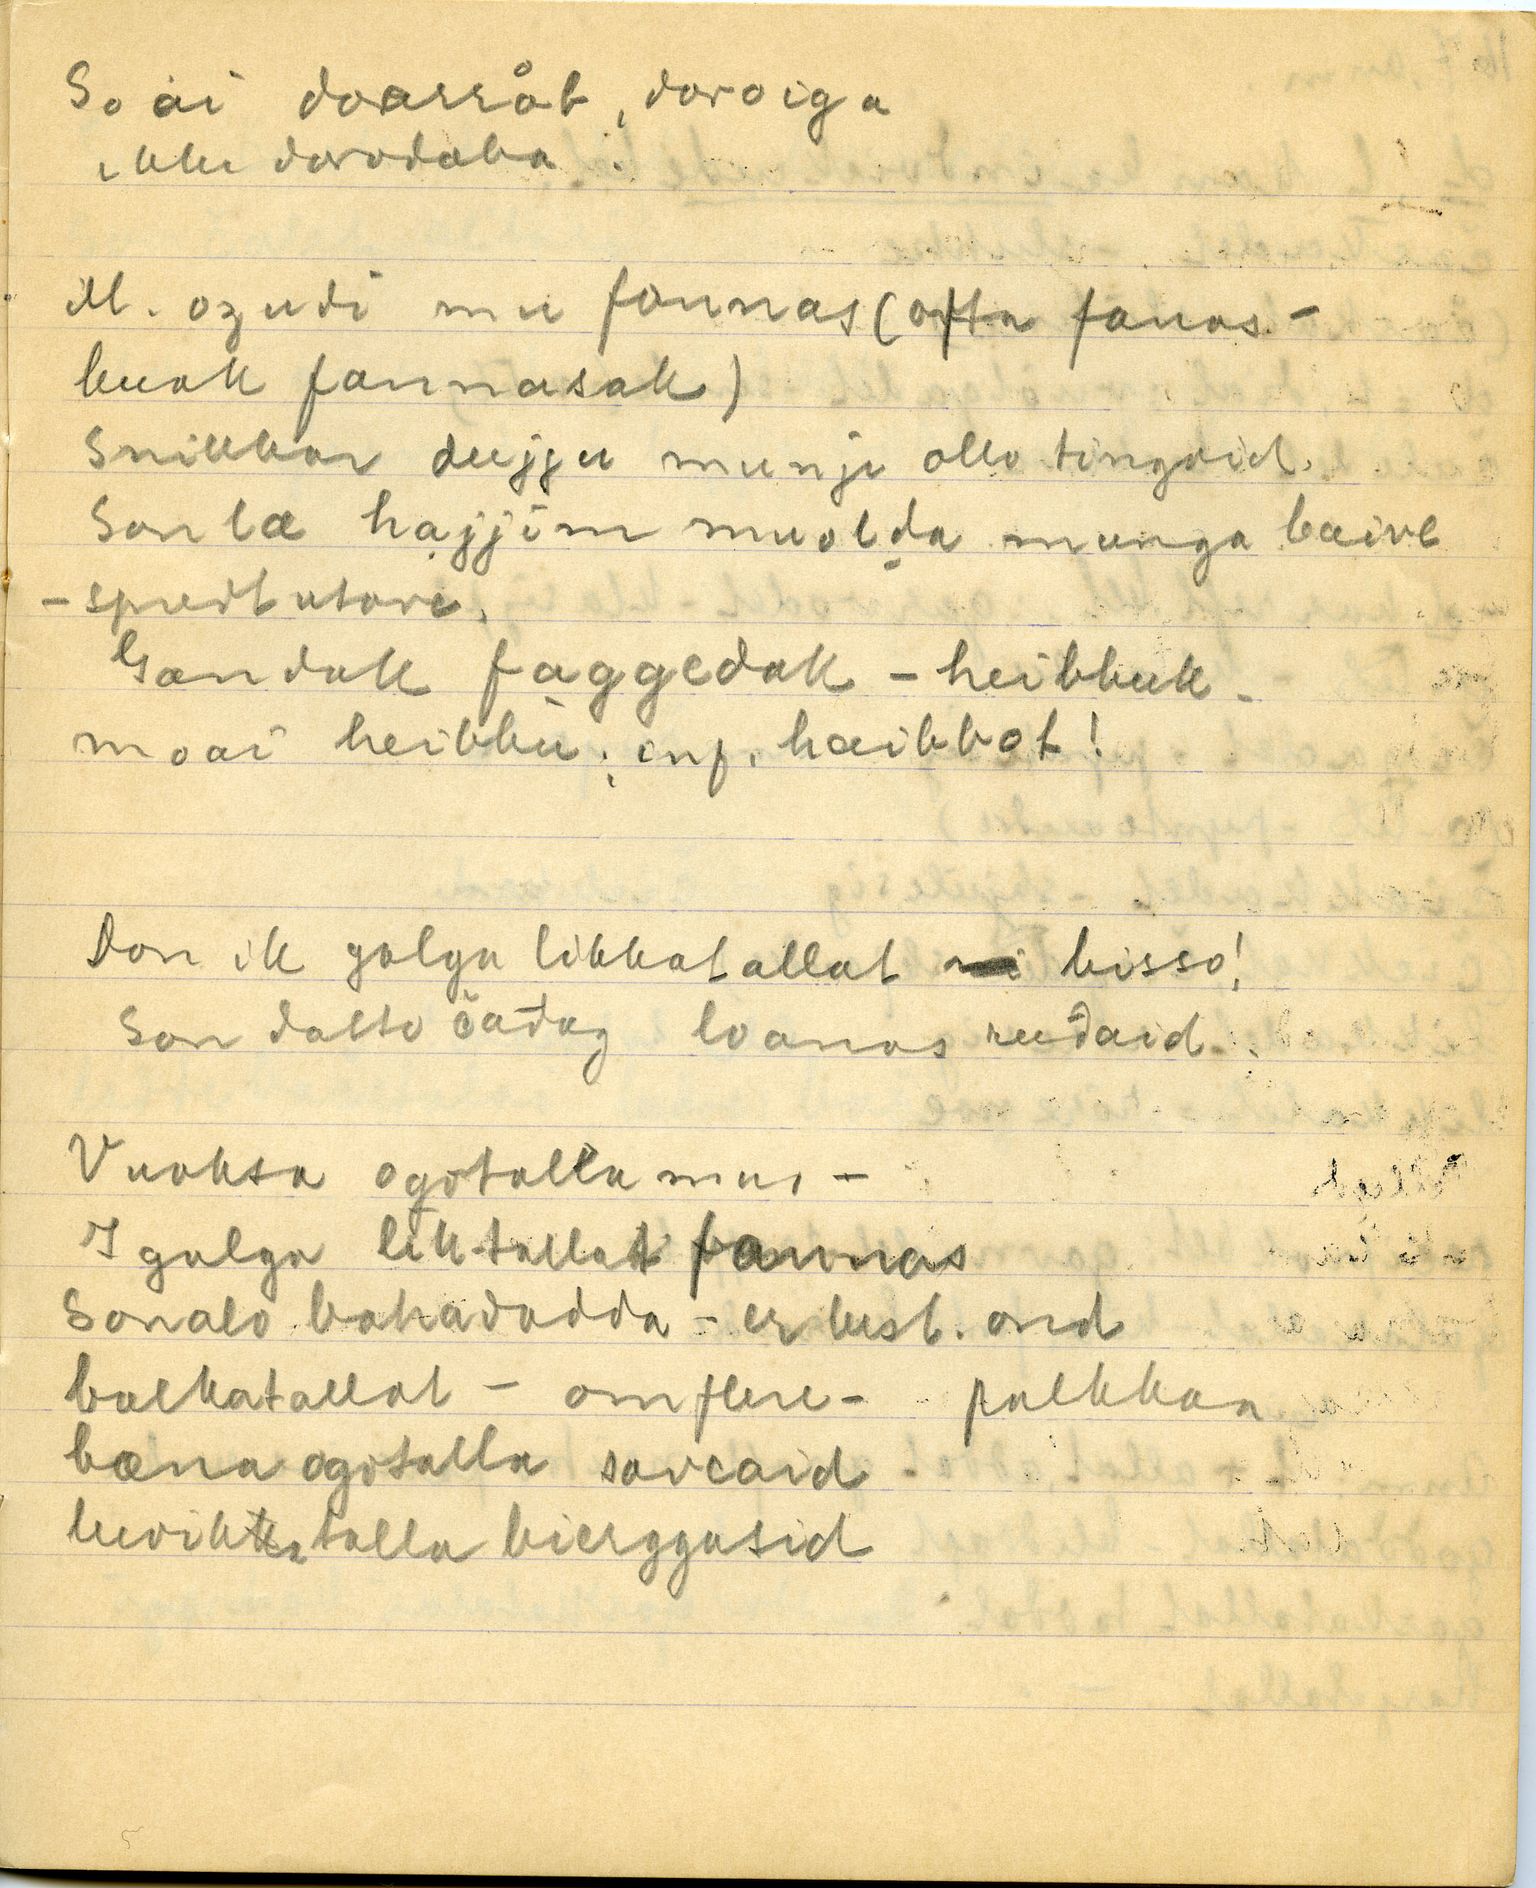 Soai doarråb, doroiga
ikke dorodæba.
M. ozudi mu fonnas (ofta fanas-
kuok fannasak)
Snikkar dujju munji ollo tingaid.
Son læ hajjim muolda munga bæive
- spredt utover.
Gændak faggedak - heibbuk -
moai heibbu; inf. hæibbot!
Don ik galga likkatallat bisso!
Son dallo čađag loanas ruđaid.
Vuoksa ogotallamus -
I galga liktallat fannas
Sonalo bahadadda - er best. ond
balkatallat - om flere - palkkaa
bæna ogotalla savcaid
kuvikka talla bierggasid
5